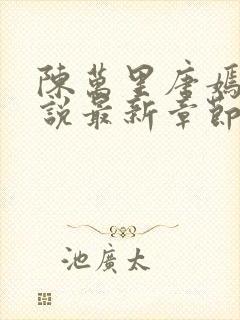 陳萬里唐嫣
說最新章節
池廣太